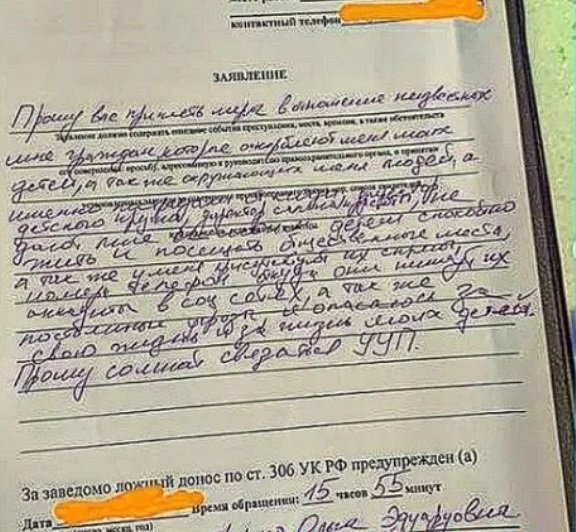 контактный телефон
ЗАЯВЛЕНИЕ
Прошу вас принять меры в отношение неизвесных
Заявление должно содержать описание события преступления, место, времени, а также обстоятельств
мне граждан которые оскорбляют меня моих
детей, а так же окружающих меня людей, а
именно
детского кружка, директор салона, не
дают мне детям спокойно
жить и посещать общественные места,
а так же у меня их скрины,
номера телефон откуда они пишут, их
аккаунты в соц сетях, а так же
постоянные угрозы я опасаюсь за
свою жизнь и за жизнь моих детей.
Прошу со мной связатся УУП.
За заведомо ложный донос по ст. 306 УК РФ предупрежден (а)
Дата Время обращения: 15 часов 55 минут
Ольга Эдуардовна